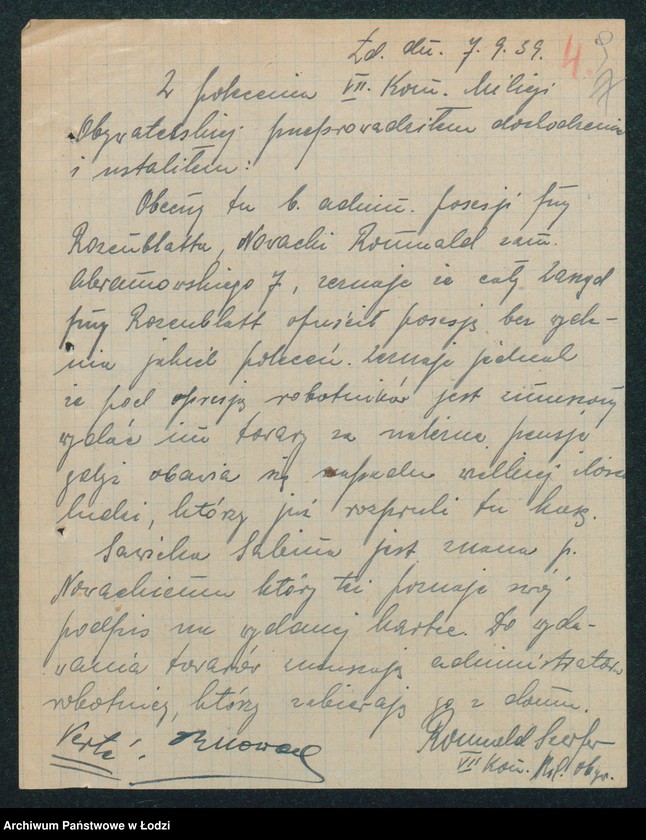 Łd. dn. 7.9.39. 4.
Z polecenia VII. Kom. Milicji
Obywatelskiej przeprowadziłem dochodzenie
i ustaliłem:
Obecny tu b. admin. posesji fmy
Rozenblatta, Novacki Romuald zam.
Abramowskiego 7, zeznaje że cały Zarząd
fmy Rozenblatt opuścił posesję bez wyda-
nia jakich poleceń. Zeznaje jednak
że pod opresją robotników jest zmuszony
wydać im towary za należną pensję
gdyż obawia się napadu wielkiej ilości
ludzi, którzy już rozpruli tu kasę.
Sawicka Sabina jest znana p.
Novackiemu który też poznaje swój
podpis na wydanej kartce. Do wyda-
wania towarów zmuszają administratora
robotnicy, którzy zabierają go z domu.
Verte! Romuald
VII Kom. Mil. Obyw.
Archiwum Państwowe w Łodzi